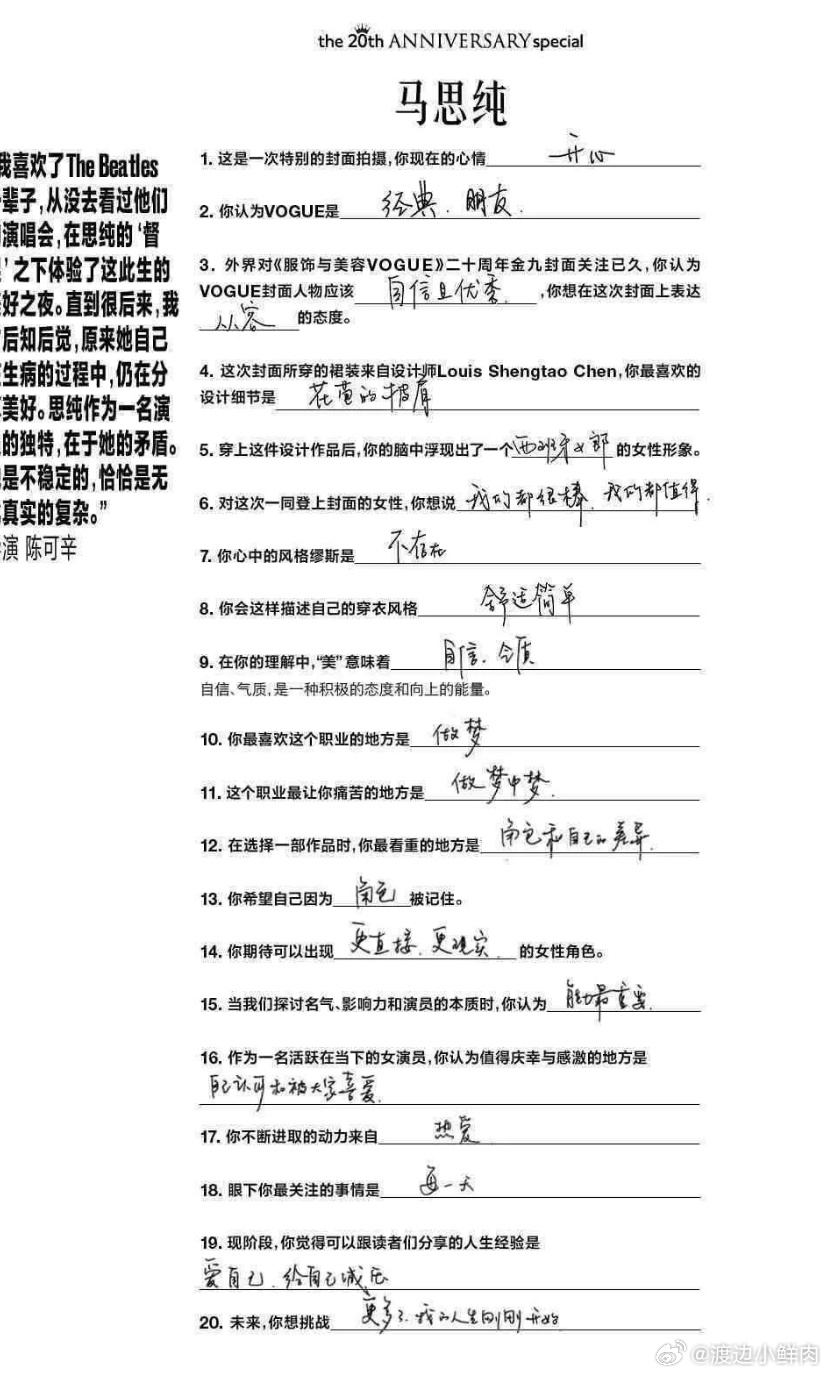 the 20th ANNIVERSARY special
马思纯
我喜欢了The Beatles
辈子，从没去看过他们
演唱会，在思纯的‘督
’之下体验了这此生的
好之夜。直到很后来，我
后知后觉，原来她自己
生病的过程中，仍在分
美好。思纯作为一名演
的独特，在于她的矛盾。
是不稳定的，恰恰是无
真实的复杂。”
演 陈可辛
1. 这是一次特别的封面拍摄，你现在的心情 开心
2. 你认为VOGUE是 经典、朋友.
3. 外界对《服饰与美容VOGUE》二十周年金九封面关注已久，你认为
VOGUE封面人物应该 自信且优秀. ，你想在这次封面上表达
从容 的态度。
4. 这次封面所穿的裙装来自设计师Louis Shengtao Chen，你最喜欢的
设计细节是 花苞的披肩
5. 穿上这件设计作品后，你的脑中浮现出了一个 西班牙女郎 的女性形象。
6. 对这次一同登上封面的女性，你想说 我们都很棒. 我们都值得.
7. 你心中的风格缪斯是 不存在
8. 你会这样描述自己的穿衣风格 舒适简单
9. 在你的理解中，“美”意味着 自信、气质
自信、气质，是一种积极的态度和向上的能量。
10. 你最喜欢这个职业的地方是 做梦
11. 这个职业最让你痛苦的地方是 做梦中梦.
12. 在选择一部作品时，你最看重的地方是 角色和自己的差异.
13. 你希望自己因为 角色 被记住。
14. 你期待可以出现 更直接、更现实. 的女性角色。
15. 当我们探讨名气、影响力和演员的本质时，你认为 能力最重要.
16. 作为一名活跃在当下的女演员，你认为值得庆幸与感激的地方是
自己认可和被大家喜爱.
17. 你不断进取的动力来自 热爱
18. 眼下你最关注的事情是 每一天
19. 现阶段，你觉得可以跟读者们分享的人生经验是
爱自己、给自己减压
20. 未来，你想挑战 更多了. 我的人生刚刚开始
@渡边小鲜肉